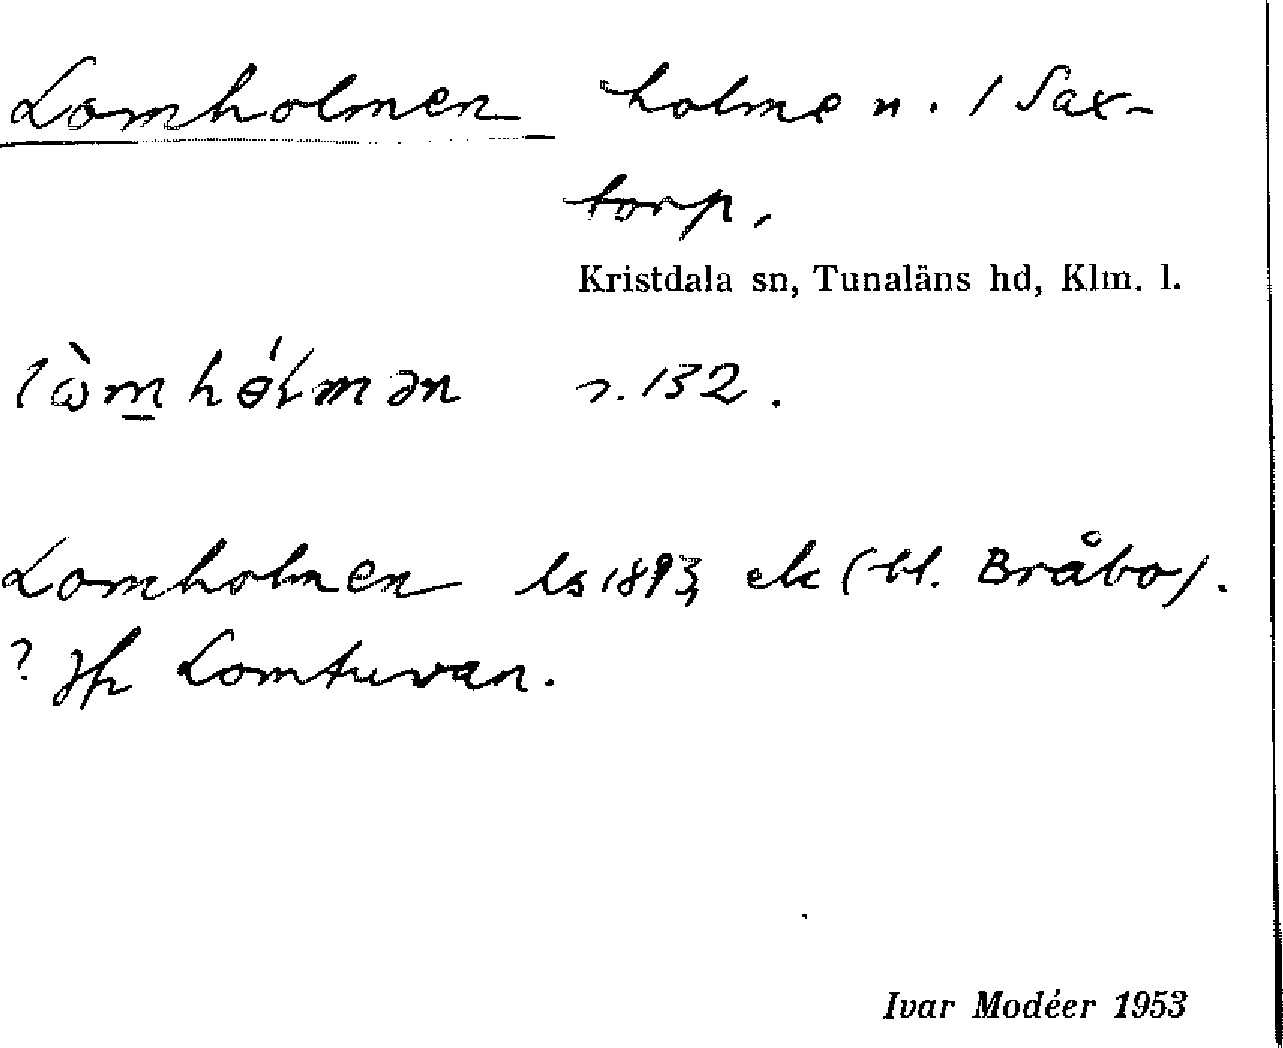 Lomholmen holme n. 1 Sax-
torp,
Kristdala sn, Tunaläns hd, Klm. l.
lὼm̲hɵ́lmən r. 132.
Lomholmen ls 1893 ek (bl. Bråbo).
? Jfr Lomtuvan.
Ivar Modéer 1953